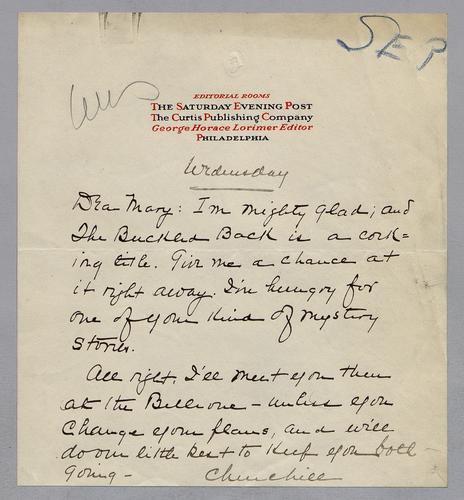 SEP
EDITORIAL ROOMS
THE SATURDAY EVENING POST
THE CURTIS PUBLISHING COMPANY
George Horace Lorimer Editor
PHILADELPHIA
Wednesday
Dear Mary: I'm mighty glad; and
The Buckled Back is a cork=
ing title. Give me a chance at
it right away. I'm hungry for
one of your kind of mystery
stories.
All right. I'll meet you then
at the Bellevue - unless you
change your plans, and will
do our little best to keep you both
going -
Churchill